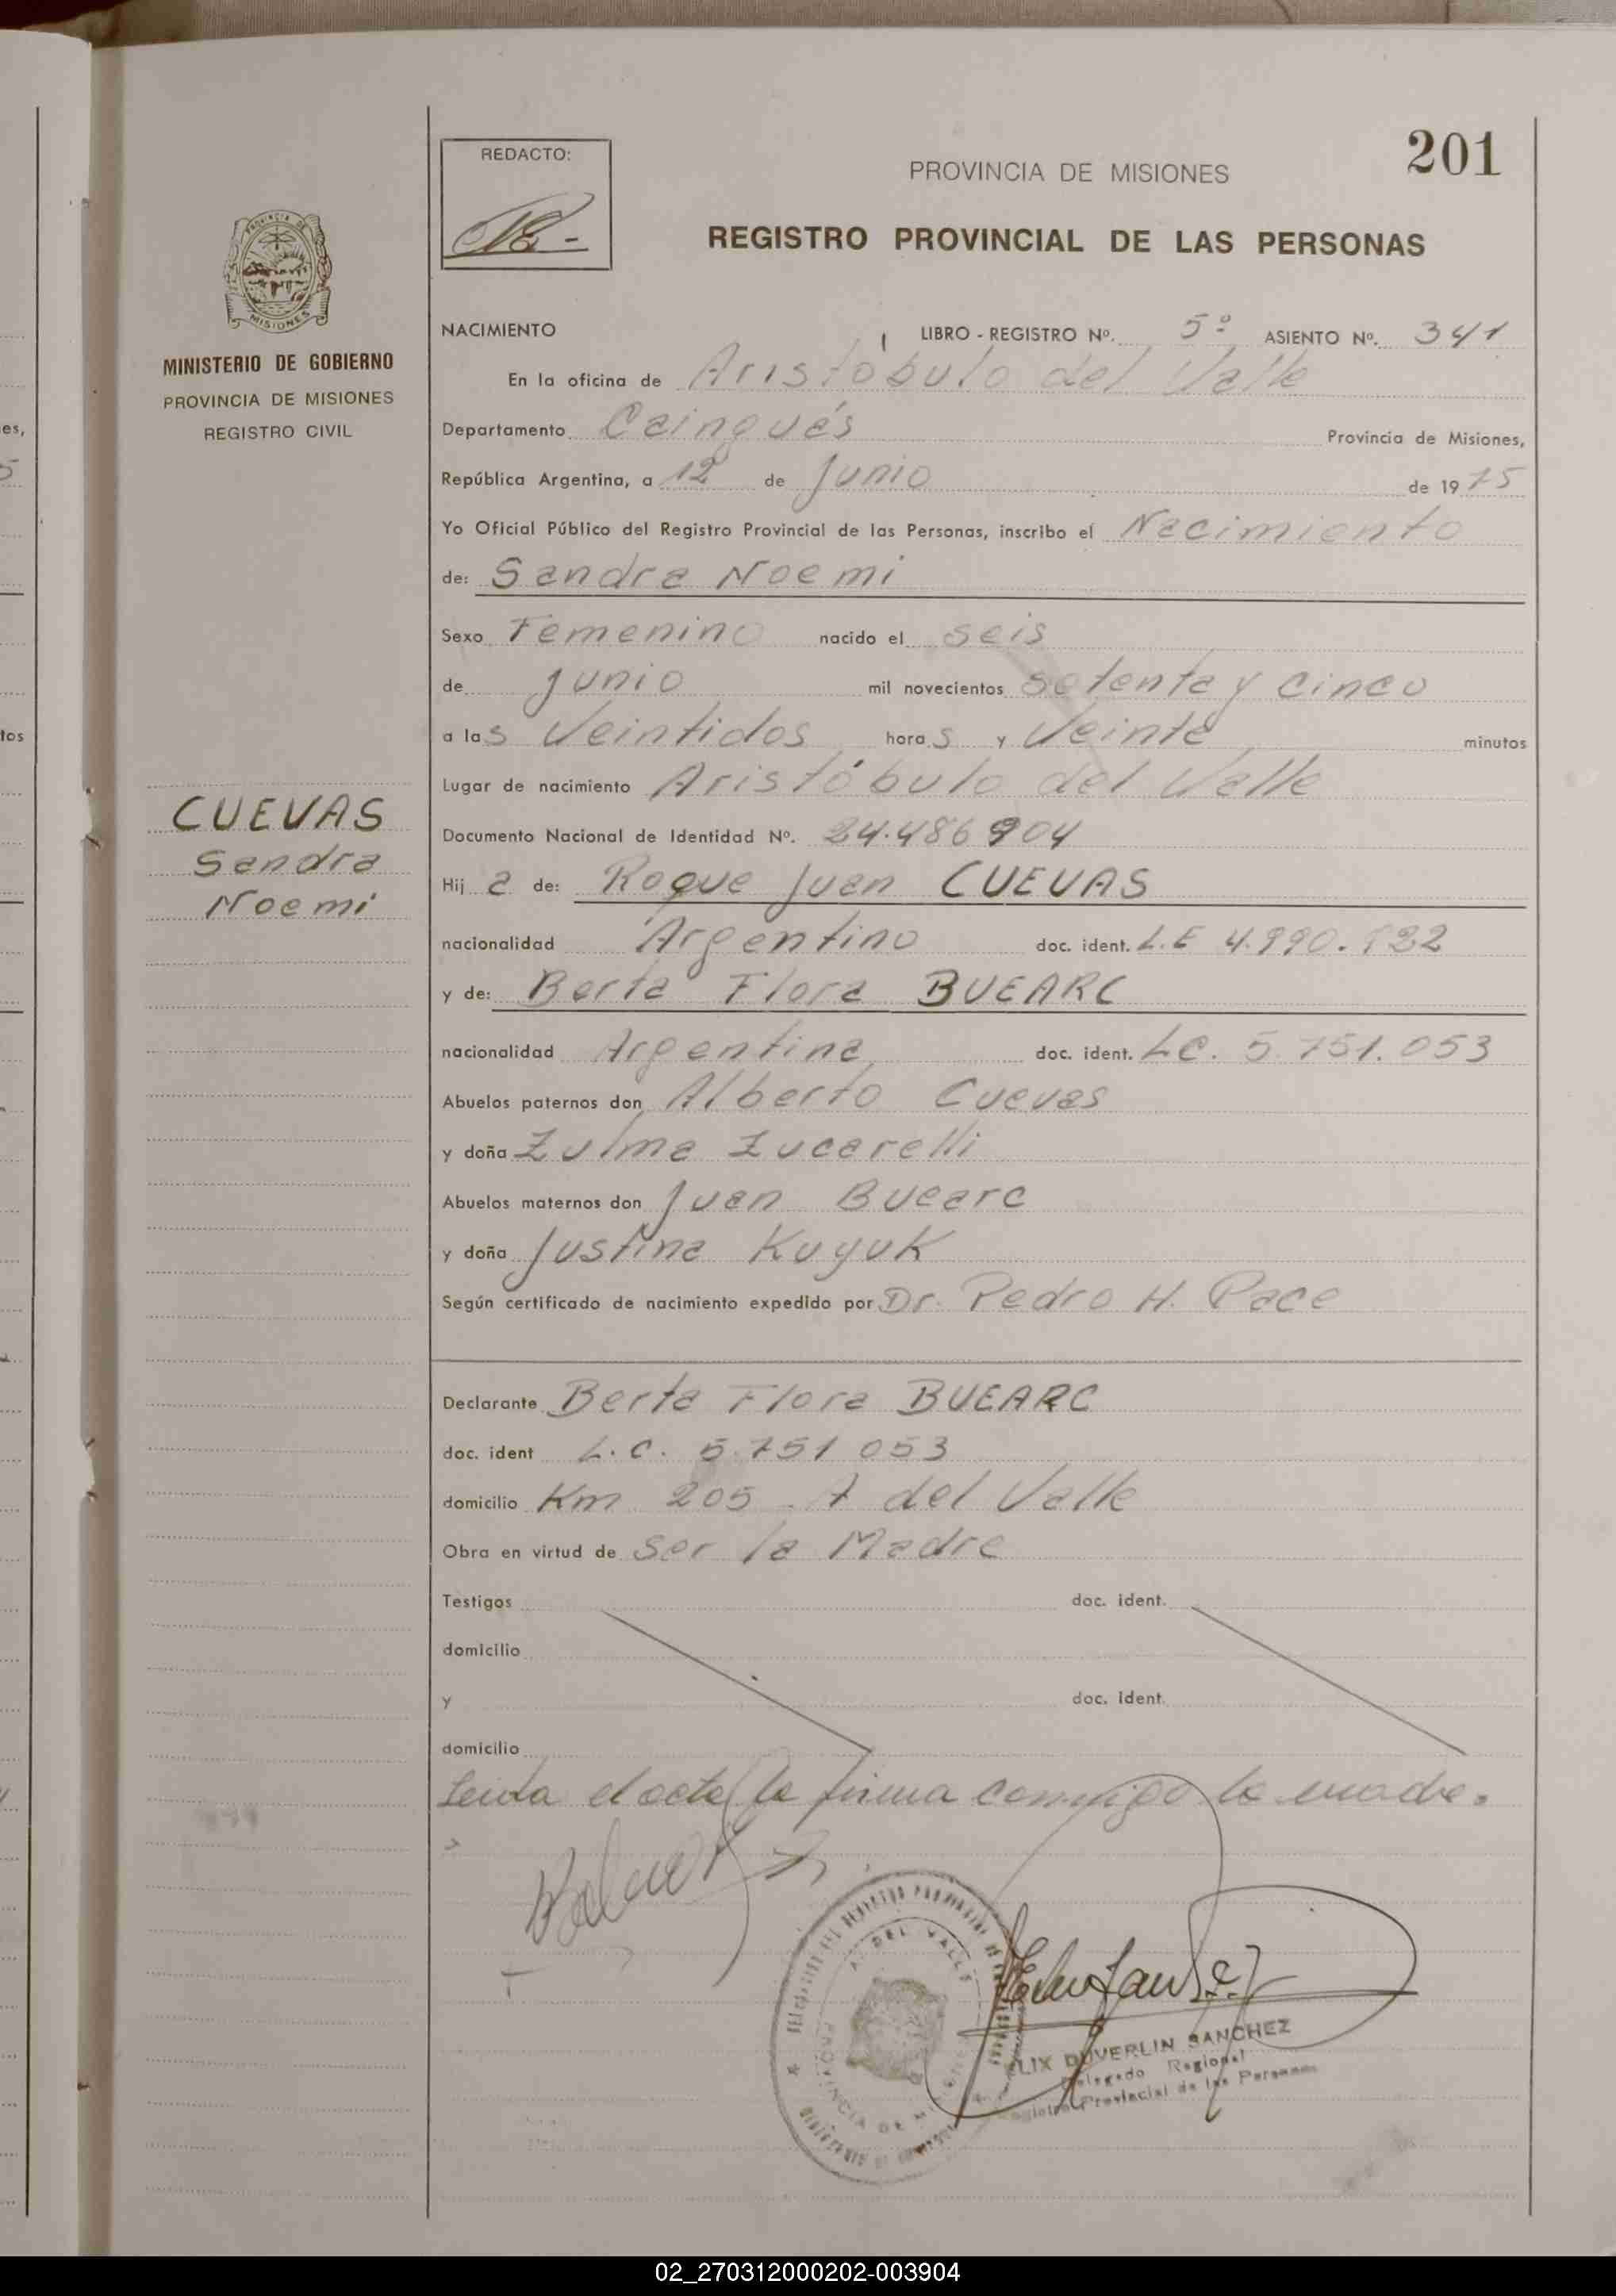 201
REDACTO:
PROVINCIA DE MISIONES
REGISTRO PROVINCIAL DE LAS PERSONAS
PROVINCIA DE
MISIONES
MINISTERIO DE GOBIERNO
PROVINCIA DE MISIONES
REGISTRO CIVIL
NACIMIENTO
LIBRO - REGISTRO Nº. 5º ASIENTO Nº. 341
En la oficina de Aristóbulo del Valle
Departamento Caingués Provincia de Misiones,
República Argentina, a 12 de Junio de 1975
Yo Oficial Público del Registro Provincial de las Personas, inscribo el Nacimiento
de: Sandra Noemi
Sexo Femenino nacido el seis
de junio mil novecientos setenta y cinco
a las Veintidos horas y Veinte minutos
Lugar de nacimiento Aristóbulo del Valle
CUEVAS
Sandra
Noemi
Documento Nacional de Identidad Nº. 24.486904
Hij a de: Roque Juan CUEVAS
nacionalidad Argentino doc. ident. L.E 4.990.
y de: Berta Flora BUEARC
nacionalidad Argentina doc. ident. LC. 5.751.053
Abuelos paternos don Alberto Cuevas
y doña Zulma Zucarelli
Abuelos maternos don Juan Buearc
y doña Justina Kuyuk
Según certificado de nacimiento expedido por Dr. Pedro H. Pace
Declarante Berta Flora BUEARC
doc. ident L.C. 5.751 053
domicilio Km 205 A del Valle
Obra en virtud de ser la Madre
Testigos doc. ident.
domicilio
y doc. ident.
domicilio
Leida el acta la firma conmigo la madre.
A. DEL VALLE
PROVINCIA DE
LIX DUVERLIN SANCHEZ
Delegado Regional
Provincial de las Personas
02_270312000202-003904